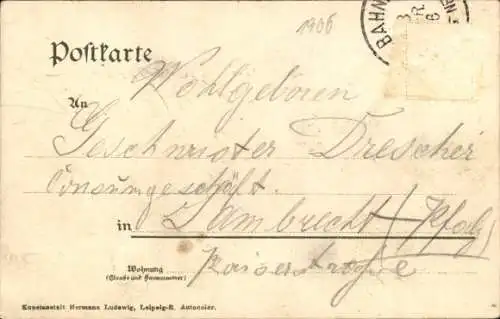 1906
BAHN
Postkarte
Wohlgeboren
An
Geschwister Drescher
Consumgeschäft.
in Lambrecht (Pfalz)
Wohnung
(Straße und Hausnummer)
Kaiserstraße
Kunstanstalt Hermann Ludewig, Leipzig-R. Autocolor.